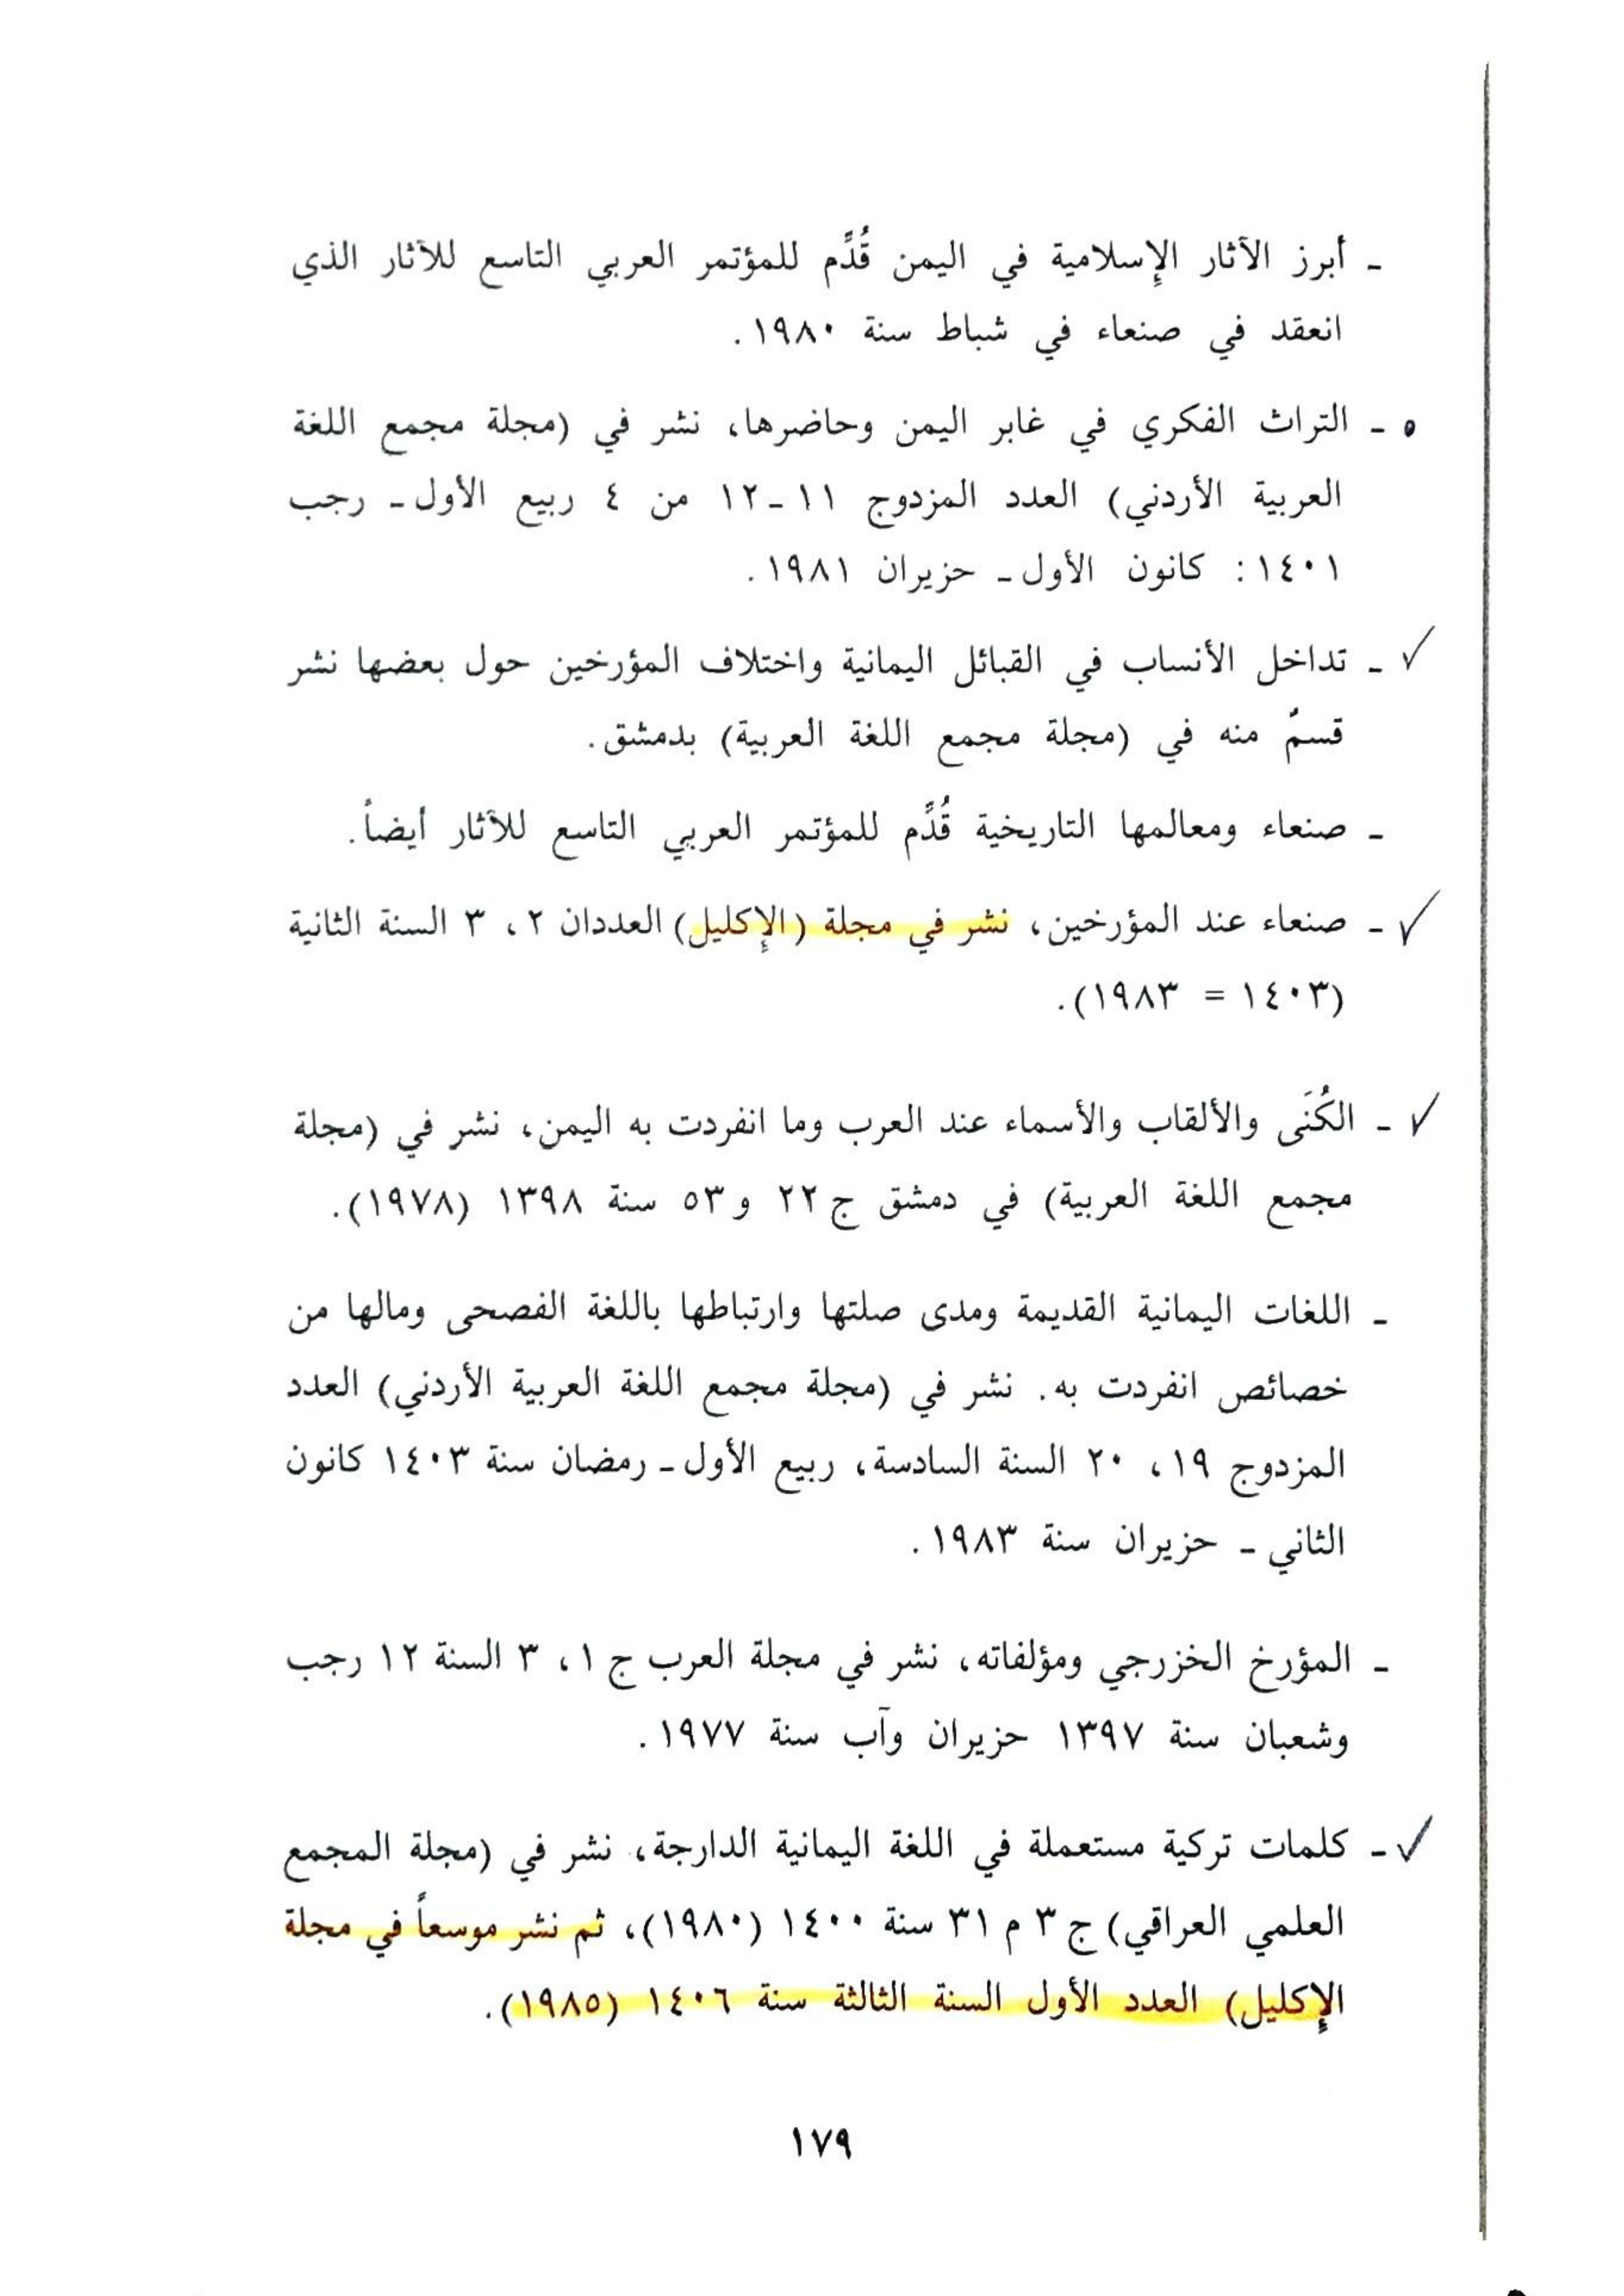 - أبرز الآثار الإسلامية في اليمن قُدِّم للمؤتمر العربي التاسع للآثار الذي
انعقد في صنعاء في شباط سنة ١٩٨٠.
٥ - التراث الفكري في غابر اليمن وحاضرها، نشر في (مجلة مجمع اللغة
العربية الأردني) العدد المزدوج ١١-١٢ من ٤ ربيع الأول - رجب
١٤٠١: كانون الأول - حزيران ١٩٨١.
✓ - تداخل الأنساب في القبائل اليمانية واختلاف المؤرخين حول بعضها نشر
قسمٌ منه في (مجلة مجمع اللغة العربية) بدمشق.
- صنعاء ومعالمها التاريخية قُدِّم للمؤتمر العربي التاسع للآثار أيضاً.
✓ - صنعاء عند المؤرخين، نشر في مجلة (الإكليل) العددان ٢، ٣ السنة الثانية
(١٤٠٣ = ١٩٨٣).
✓ - الكُنَى والألقاب والأسماء عند العرب وما انفردت به اليمن، نشر في (مجلة
مجمع اللغة العربية) في دمشق ج ٢٢ و ٥٣ سنة ١٣٩٨ (١٩٧٨).
- اللغات اليمانية القديمة ومدى صلتها وارتباطها باللغة الفصحى ومالها من
خصائص انفردت به. نشر في (مجلة مجمع اللغة العربية الأردني) العدد
المزدوج ١٩، ٢٠ السنة السادسة، ربيع الأول - رمضان سنة ١٤٠٣ كانون
الثاني - حزيران سنة ١٩٨٣.
- المؤرخ الخزرجي ومؤلفاته، نشر في مجلة العرب ج ١، ٣ السنة ١٢ رجب
وشعبان سنة ١٣٩٧ حزيران وآب سنة ١٩٧٧.
✓ - كلمات تركية مستعملة في اللغة اليمانية الدارجة، نشر في (مجلة المجمع
العلمي العراقي) ج ٣ م ٣١ سنة ١٤٠٠ (١٩٨٠)، ثم نشر موسعاً في مجلة
الإكليل) العدد الأول السنة الثالثة سنة ١٤٠٦ (١٩٨٥).
١٧٩